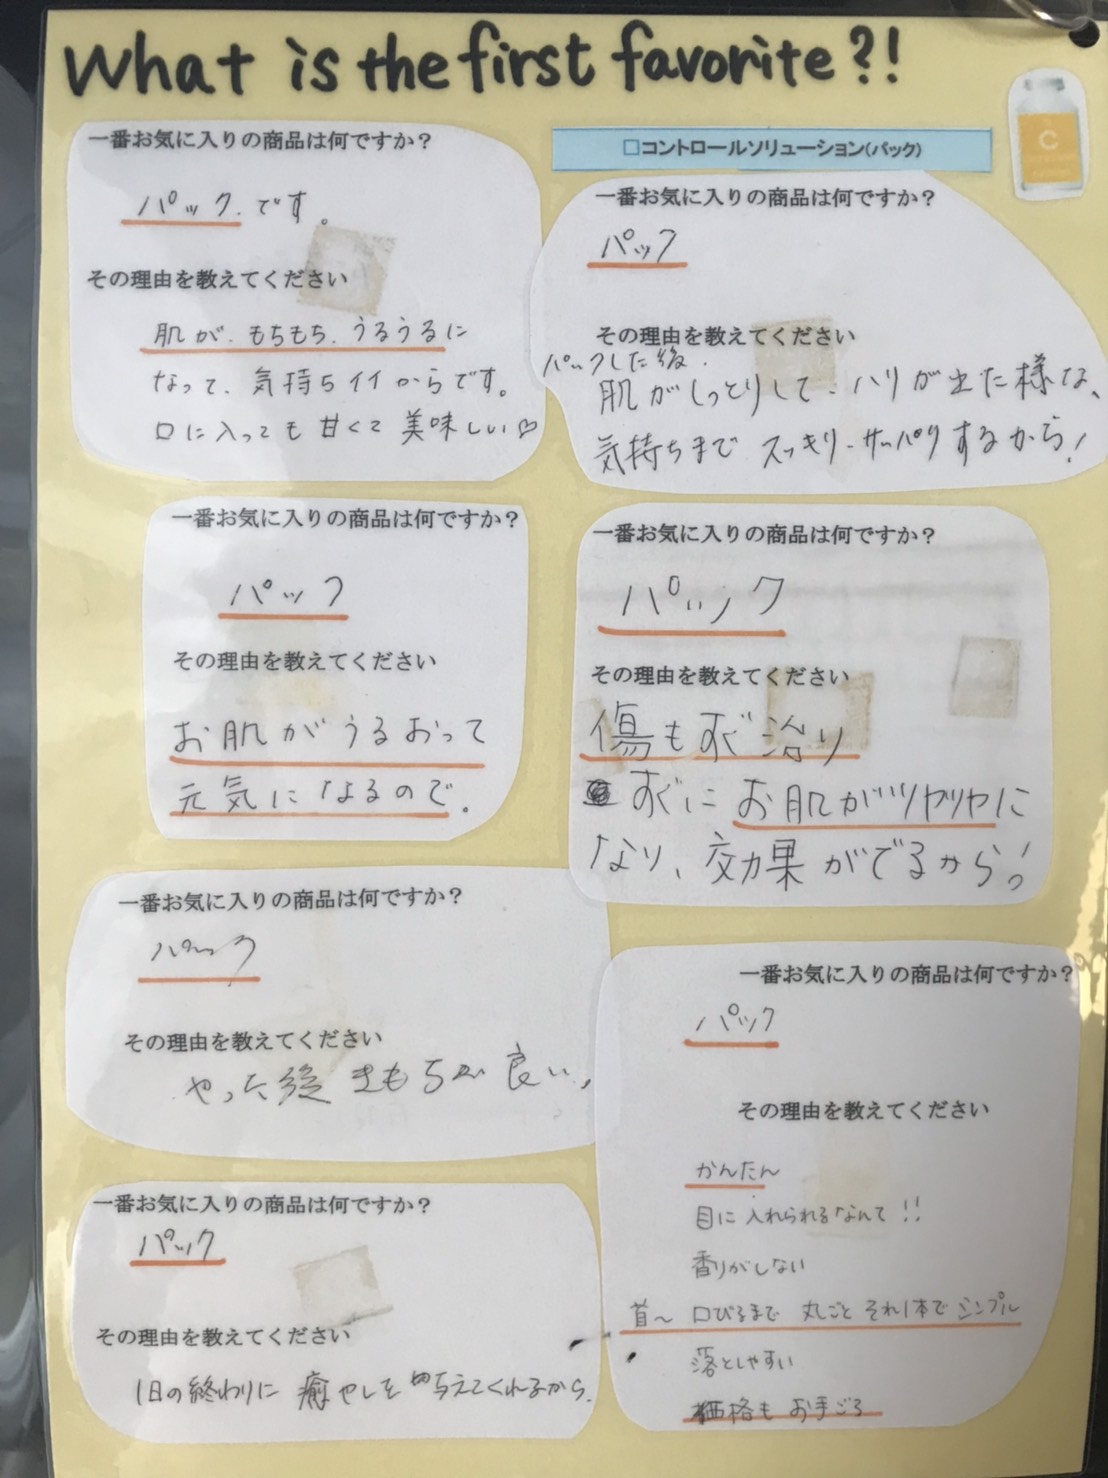 What is the first favorite?!
一番お気に入りの商品は何ですか?
パックです。
その理由を教えてください
肌が、もちもち、うるうるに
なって、気持ちイイからです。
口に入っても甘くて美味しい♡
□コントロールソリューション(パック)
C
一番お気に入りの商品は何ですか?
パック
その理由を教えてください
パックした後、
肌がしっとりして、ハリが出た様な、
気持ちまでスッキリ-サッパリするから!
一番お気に入りの商品は何ですか?
パック
その理由を教えてください
お肌がうるおって
元気になるので。
一番お気に入りの商品は何ですか?
パック
その理由を教えてください
傷もすぐ治り
すぐにお肌がツヤツヤに
なり、効果がでるから!
一番お気に入りの商品は何ですか?
パック
その理由を教えてください
やった後きもちが良い、
一番お気に入りの商品は何ですか?
パック
その理由を教えてください
かんたん
目に入れられるなんて!!
香りがしない
首~口びるまで丸ごとそれ1本でシンプル
落としやすい
価格もお手ごろ
一番お気に入りの商品は何ですか?
パック
その理由を教えてください
1日の終わりに癒やしを与えてくれるから。